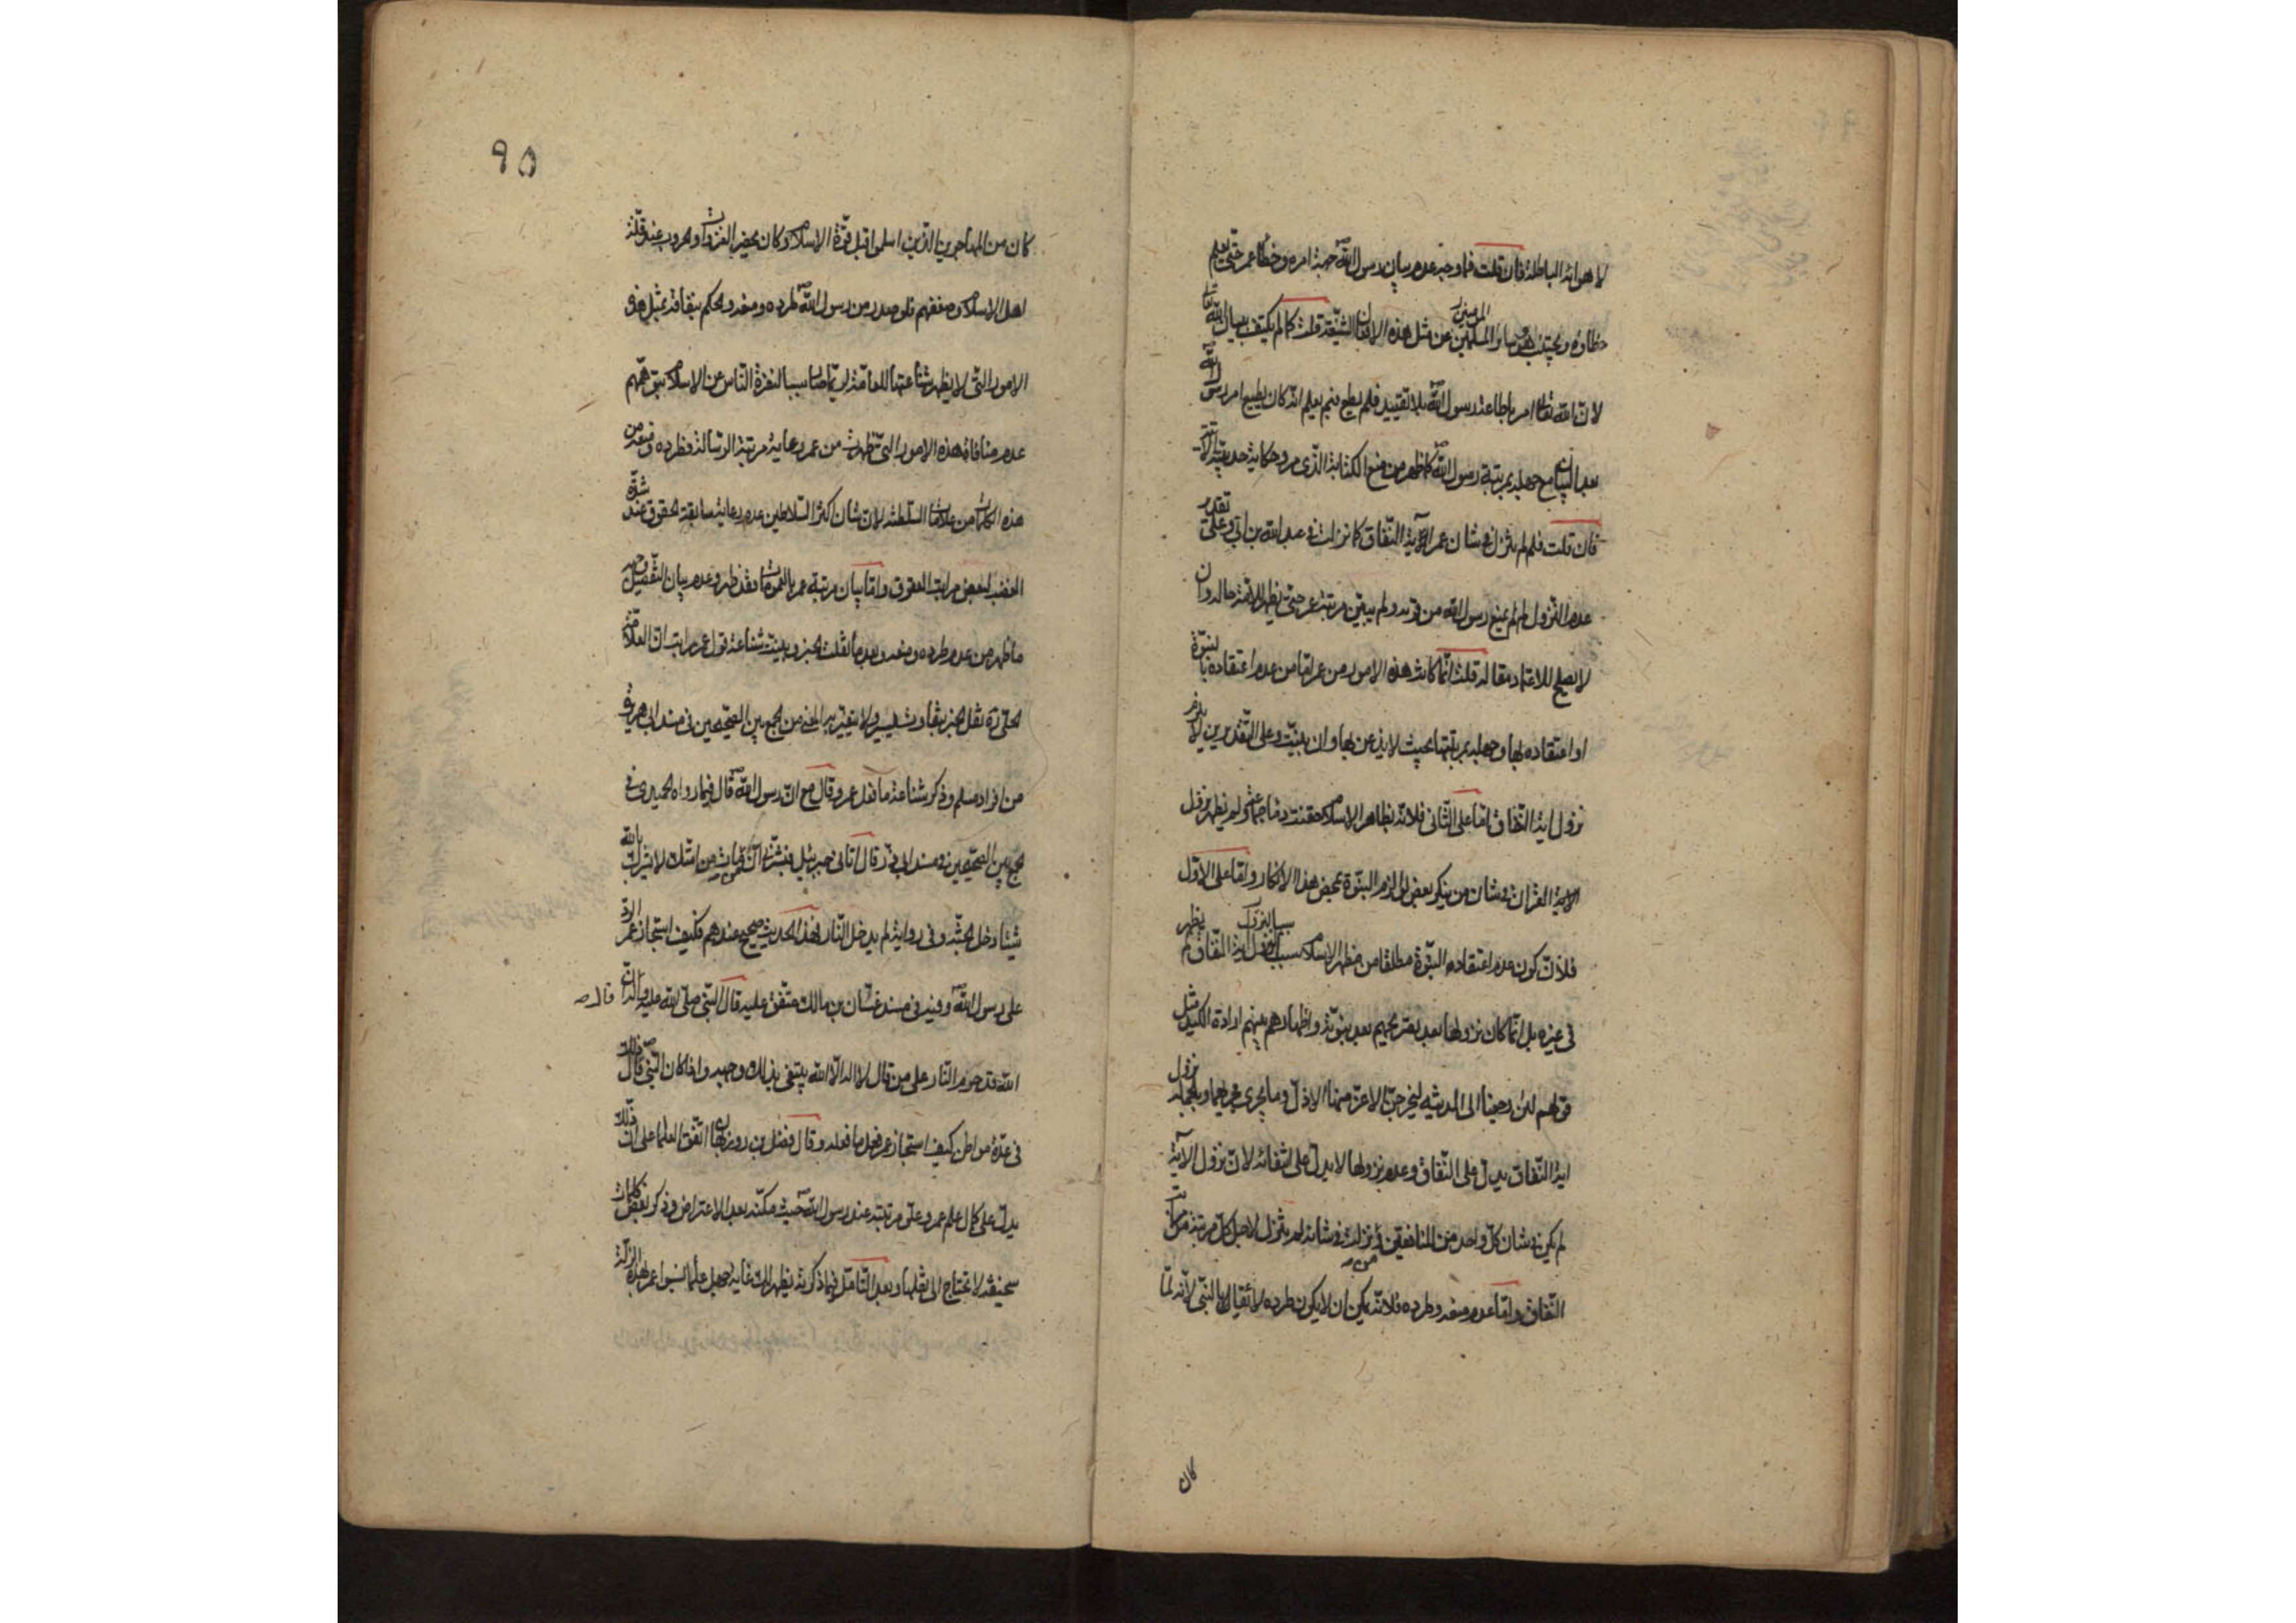 لاهوائه الباطلة فان قلت فما وجه عدم بيان رسول الله ص جهة امره وخطأ عمر حتى يعلم
خطاؤه ويجتنب هو وسائر المسلمين عن مثل هذه الافعال الشنيعة قلت كما لم يكتف ببيان الله تعالى
لان الله تعالى امر باطاعة رسول الله ص بلا تقييد فلم يطع فبم يعلم انه كان يطيع امر رسول الله
بعد البيان مع جهله بمرتبة رسول الله ص كما ظهر من منع الكتابة الذي مر وحكاية حديبية
فان قلت فلم لم ينزل في شان عمر آية النفاق كما نزلت في عبد الله بن ابي وعلى تقدير
عدم النزول لم لم يمنع رسول الله من قربه ولم يبين مرتبة عمر حتى يظهر للامة حاله وان
لا يصلح للاعتماد مقاله قلت انما كانت هذه الامور من عمر اما من عدم اعتقاده بالنبوة
او اعتقاده بها وجهله بمرتبتها بحيث لا يذعن بها وان بينت وعلى التقديرين لا يلزم
نزول اية النفاق اما على الثاني فلانه بظاهر الاسلام حقنت دماء جماعة ولم يظهر نزول
الاية القرآن في شان من ينكر بعض لوازم النبوة بمحض هذا الانكار واما على الاول
فلان كون عدم اعتقاده النبوة مطلقا من مظهر الاسلام سببا لنزول اية النفاق لم يظهر
في غيره بل انما كان نزولها بعد تصريحهم بعدم نبوته واظهارهم بينهم ارادة الكيد مثل
قولهم لئن رجعنا الى المدينة ليخرجن الاعز منها الاذل وما يجري مجريها وبالجملة نزول
اية النفاق يدل على النفاق وعدم نزولها لا يدل على انتفائه لان نزول الآية
لم يكن في شان كل واحد من المنافقين من نزلت في شانه لم ينزل لاجل كل مرتبة من مراتب
النفاق واما عدم منعه وطرده فلانه يمكن ان لا يكون طرده لائقا بالنبي لانه لما
كان
٩٥
كان من المهاجرين الذين اسلموا قبل قوة الاسلام وكان يحضر الغزوات وهروب عند قلة
اهل الاسلام وضعفهم فلو صدر من رسول الله ص طرده ومنعه والحكم بنفاقه بمثل هذه
الامور التي لا يظهر شناعتها للعامة لربما صار سببا لنفرة الناس عن الاسلام بتوهمهم
عدم منافاة هذه الامور التي ظهرت من عمر رعاية مرتبة الرسالة فطرده ومنعه من
هذه الكلمات من علامات السلطنة لان شان اكثر السلاطين عدم رعاية سابقة الحقوق عند شدة
الغضب لبعض مراتب العقوق واما بيان مرتبة عمر بالعمومات فقد ظهر وعدم بيان التفصيل وجهه
ما ظهر من عدم طرده ومنعه وبعد ما نقلت الخبر وبينت شناعة قول عمر رايت ان العلامة
الحلي ره نقل الخبر بتفاوت يسير ولا يتغير به المعنى من الجمع بين الصحيحين في مسند ابي هريرة
من افراد مسلم وذكر شناعة ما فعل عمر وقال مع ان رسول الله ص قال فيما رواه الحميدي في
الجمع بين الصحيحين في مسند ابي ذر قال اتاني جبرئيل فبشرني ان من مات من امتك لا يشرك بالله
شيئا دخل الجنة وفي رواية لم يدخل النار فهذا الحديث صحيح عندهم فكيف استجاز عمر الرد
على رسول الله ص وفيه في مسند غسان بن مالك متفق عليه قال النبي صلى الله عليه واله ان
قال ص
الله قد حرم النار على من قال لا اله الا الله يبتغي بذلك وجهه واذا كان النبي ص قال ذلك
في عدة مواطن كيف استجاز عمر فعل ما فعله وقال فضل بن روزبهان اتفق العلما على ان ذلك
يدل على كمال علم عمر وعلو مرتبته عند رسول الله ص حيث مكنه بعد الاعتراض وذكر بعض كلمات
سخيفة لا تحتاج الى نقلها وبعد التامل فيما ذكرته يظهر لك غاية جهل علماء نسبوا عمر بهذه الزلة